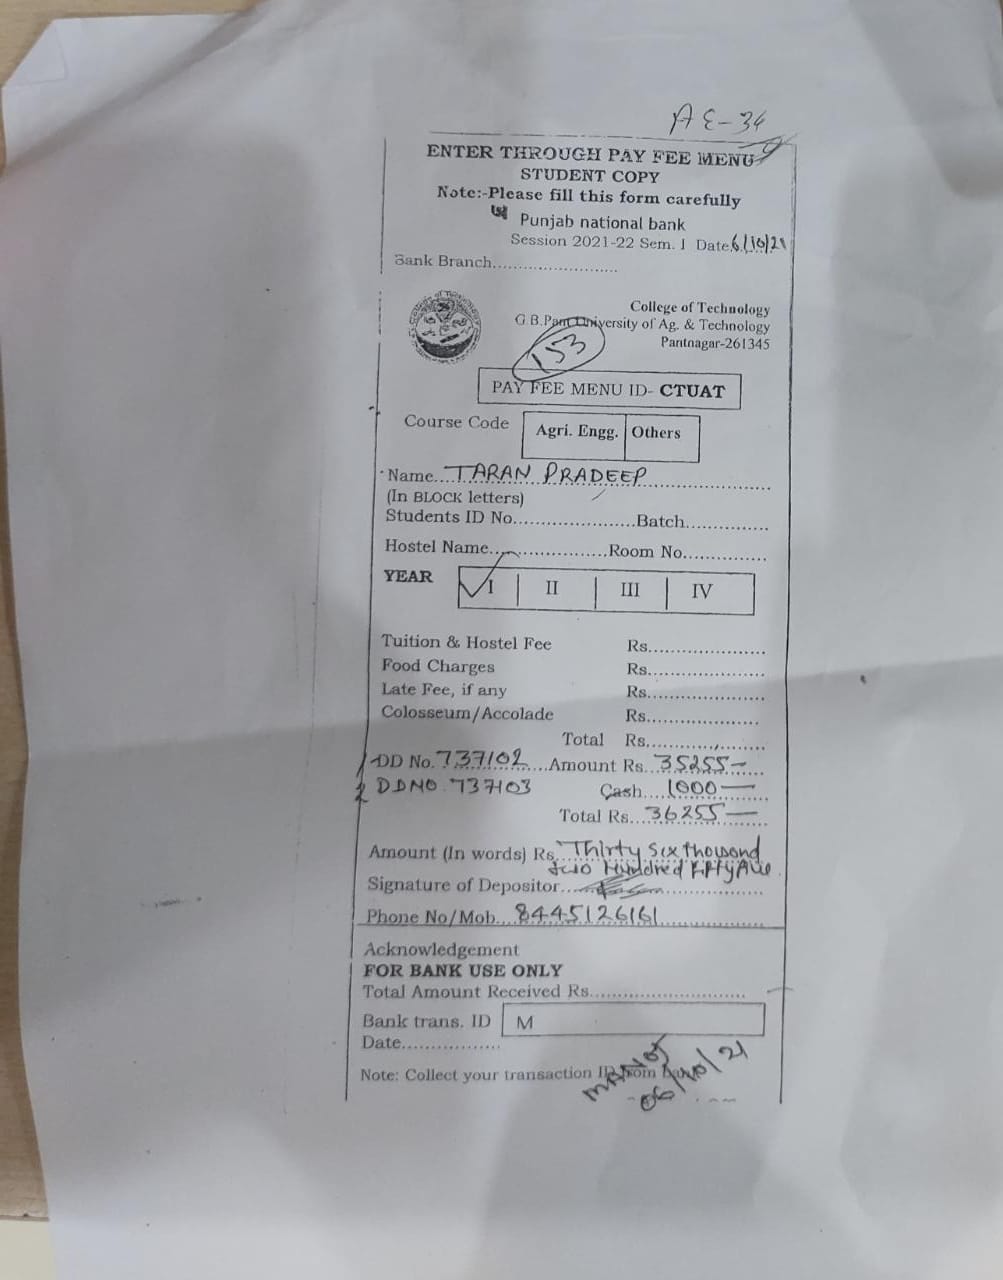 AE-34
ENTER THROUGH PAY FEE MENU
STUDENT COPY
Note:-Please fill this form carefully
Punjab national bank
Session 2021-22 Sem. I Date.6/10/21
Bank Branch........................
College of Technology
G.B.Pant University of Ag. & Technology
Pantnagar-261345
153
PAY FEE MENU ID- CTUAT
Course Code Agri. Engg. Others
Name....TARAN PRADEEP....................
(In BLOCK letters)
Students ID No......................Batch...............
Hostel Name.....................Room No...............
YEAR I II III IV
Tuition & Hostel Fee Rs.....................
Food Charges Rs.....................
Late Fee, if any Rs.....................
Colosseum/Accolade Rs.....................
Total Rs.....................
1 DD No.737102....Amount Rs...35255-
2 DDNO.737103 Cash....1000-
Total Rs...36255-
Amount (In words) Rs. Thirty Six thousand
two Hundred fifty five
Signature of Depositor...............................
Phone No/Mob...8445126161....................
Acknowledgement
FOR BANK USE ONLY
Total Amount Received Rs............................
Bank trans. ID M
Date..................
Note: Collect your transaction ID from Bank
MANOJ
06/10/21